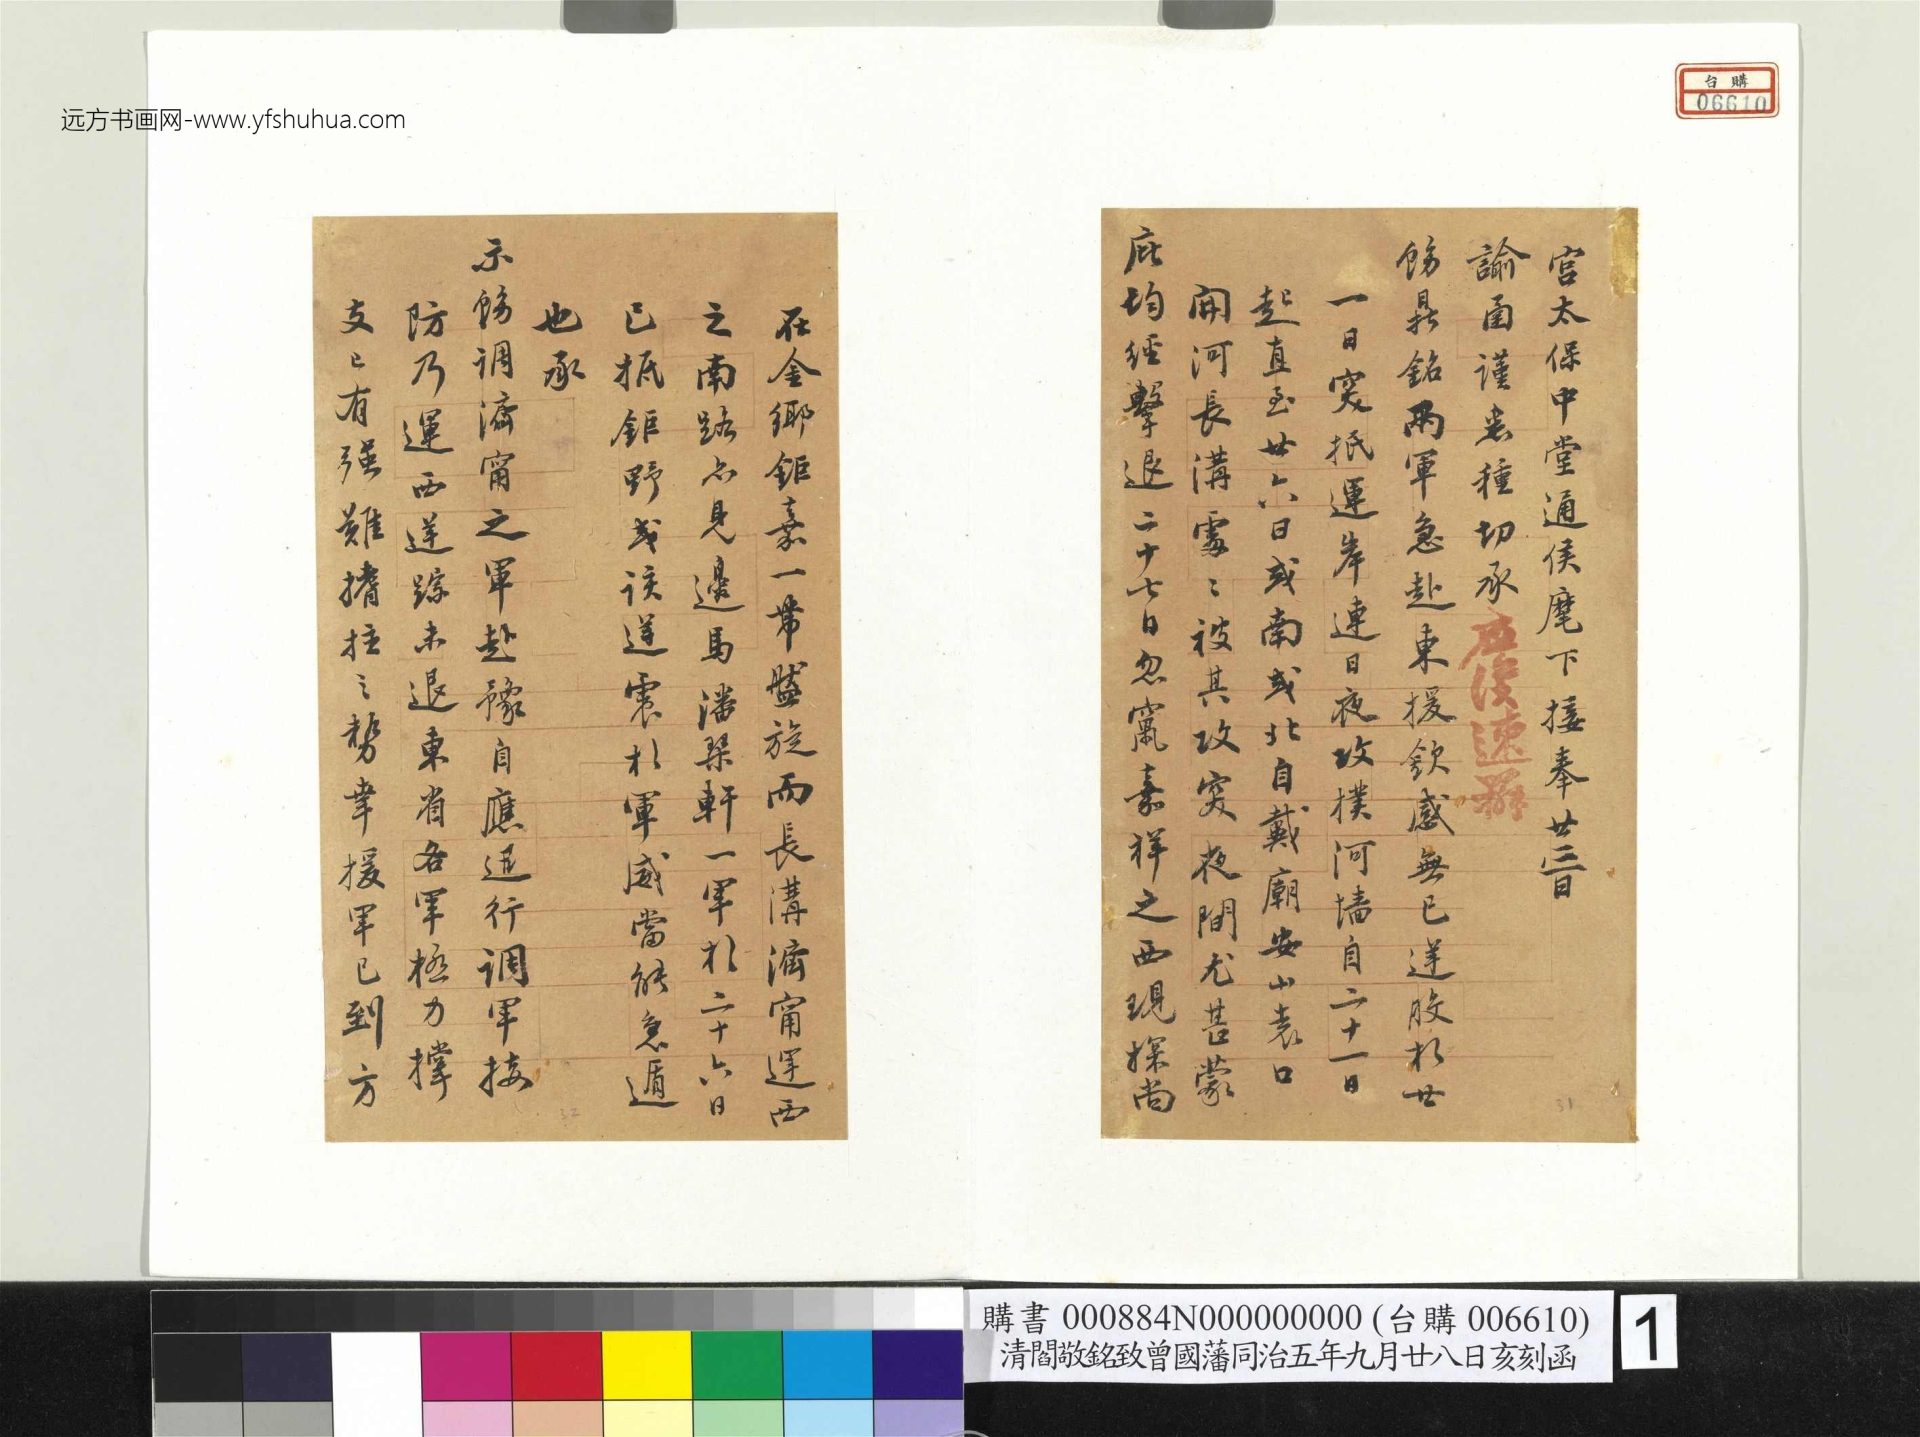 远方书画网-www.yfshuhua.com
台購
06610
宮太保中堂通侯麾下接奉廿三日
諭函謹悉種切承
飭鼎銘兩軍急赴東援欽感無已逆股於廿
一日突抵運岸連日夜攻撲河墻自二十一日
起直至廿六日或南或北自戴廟安山袁口
開河長溝處處被其攻突夜間尤甚蒙
庇均經擊退二十七日忽竄嘉祥之西現探尚
在金鄉鉅嘉一帶盤旋而長溝濟甯運西
之南路亦見邊馬潘琹軒一軍於二十六日
已抵鉅野或該逆震於軍威當能急遁
也承
示飭調濟甯之軍赴豫自應迅行調軍接
防乃運西逆踪未退東省各軍極力撐
支已有强難搘拄之勢幸援軍已到方
速
31
32
購書 000884N000000000 (台購 006610)
清閻敬銘致曾國藩同治五年九月廿八日亥刻函
1